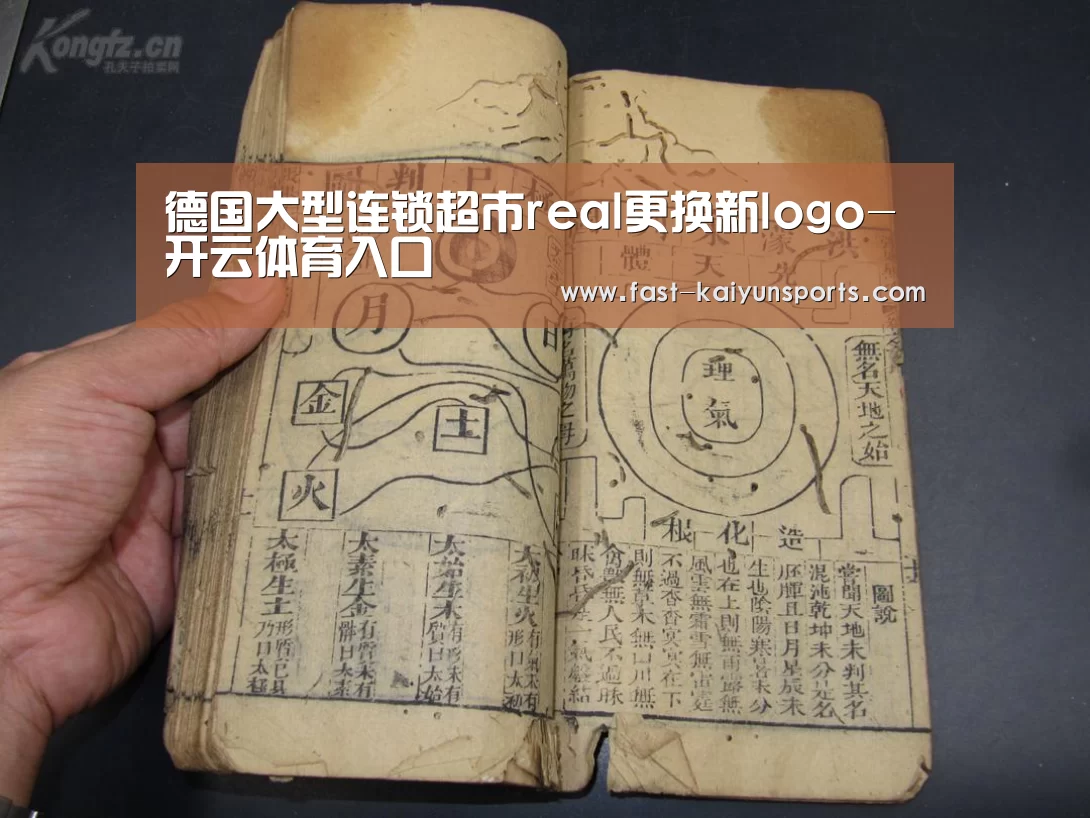 Kongfz.cn
孔夫子拍卖网
德国大型连锁超市real更换新logo-
开云体育入口
www.fast-kaiyunsports.com
體
天
先
濛
洪
無名天地之始
理
氣
造
化
根
圖說
嘗聞天地未判其名
混沌乾坤未分是名
胚腪且日月星辰未
生也陰陽寒暑未分
也在上則無雨露無
風雲無霜雪無雷霆
不過杳杳冥冥在下
則無草木無山川無
禽獸無人民不過昧
月
日
金
土
火
太初生火
形曰太初
太始生木
有形未有
質曰太始
太素生金
有質未有
體曰太素
太極生土
形質已具
乃曰太極